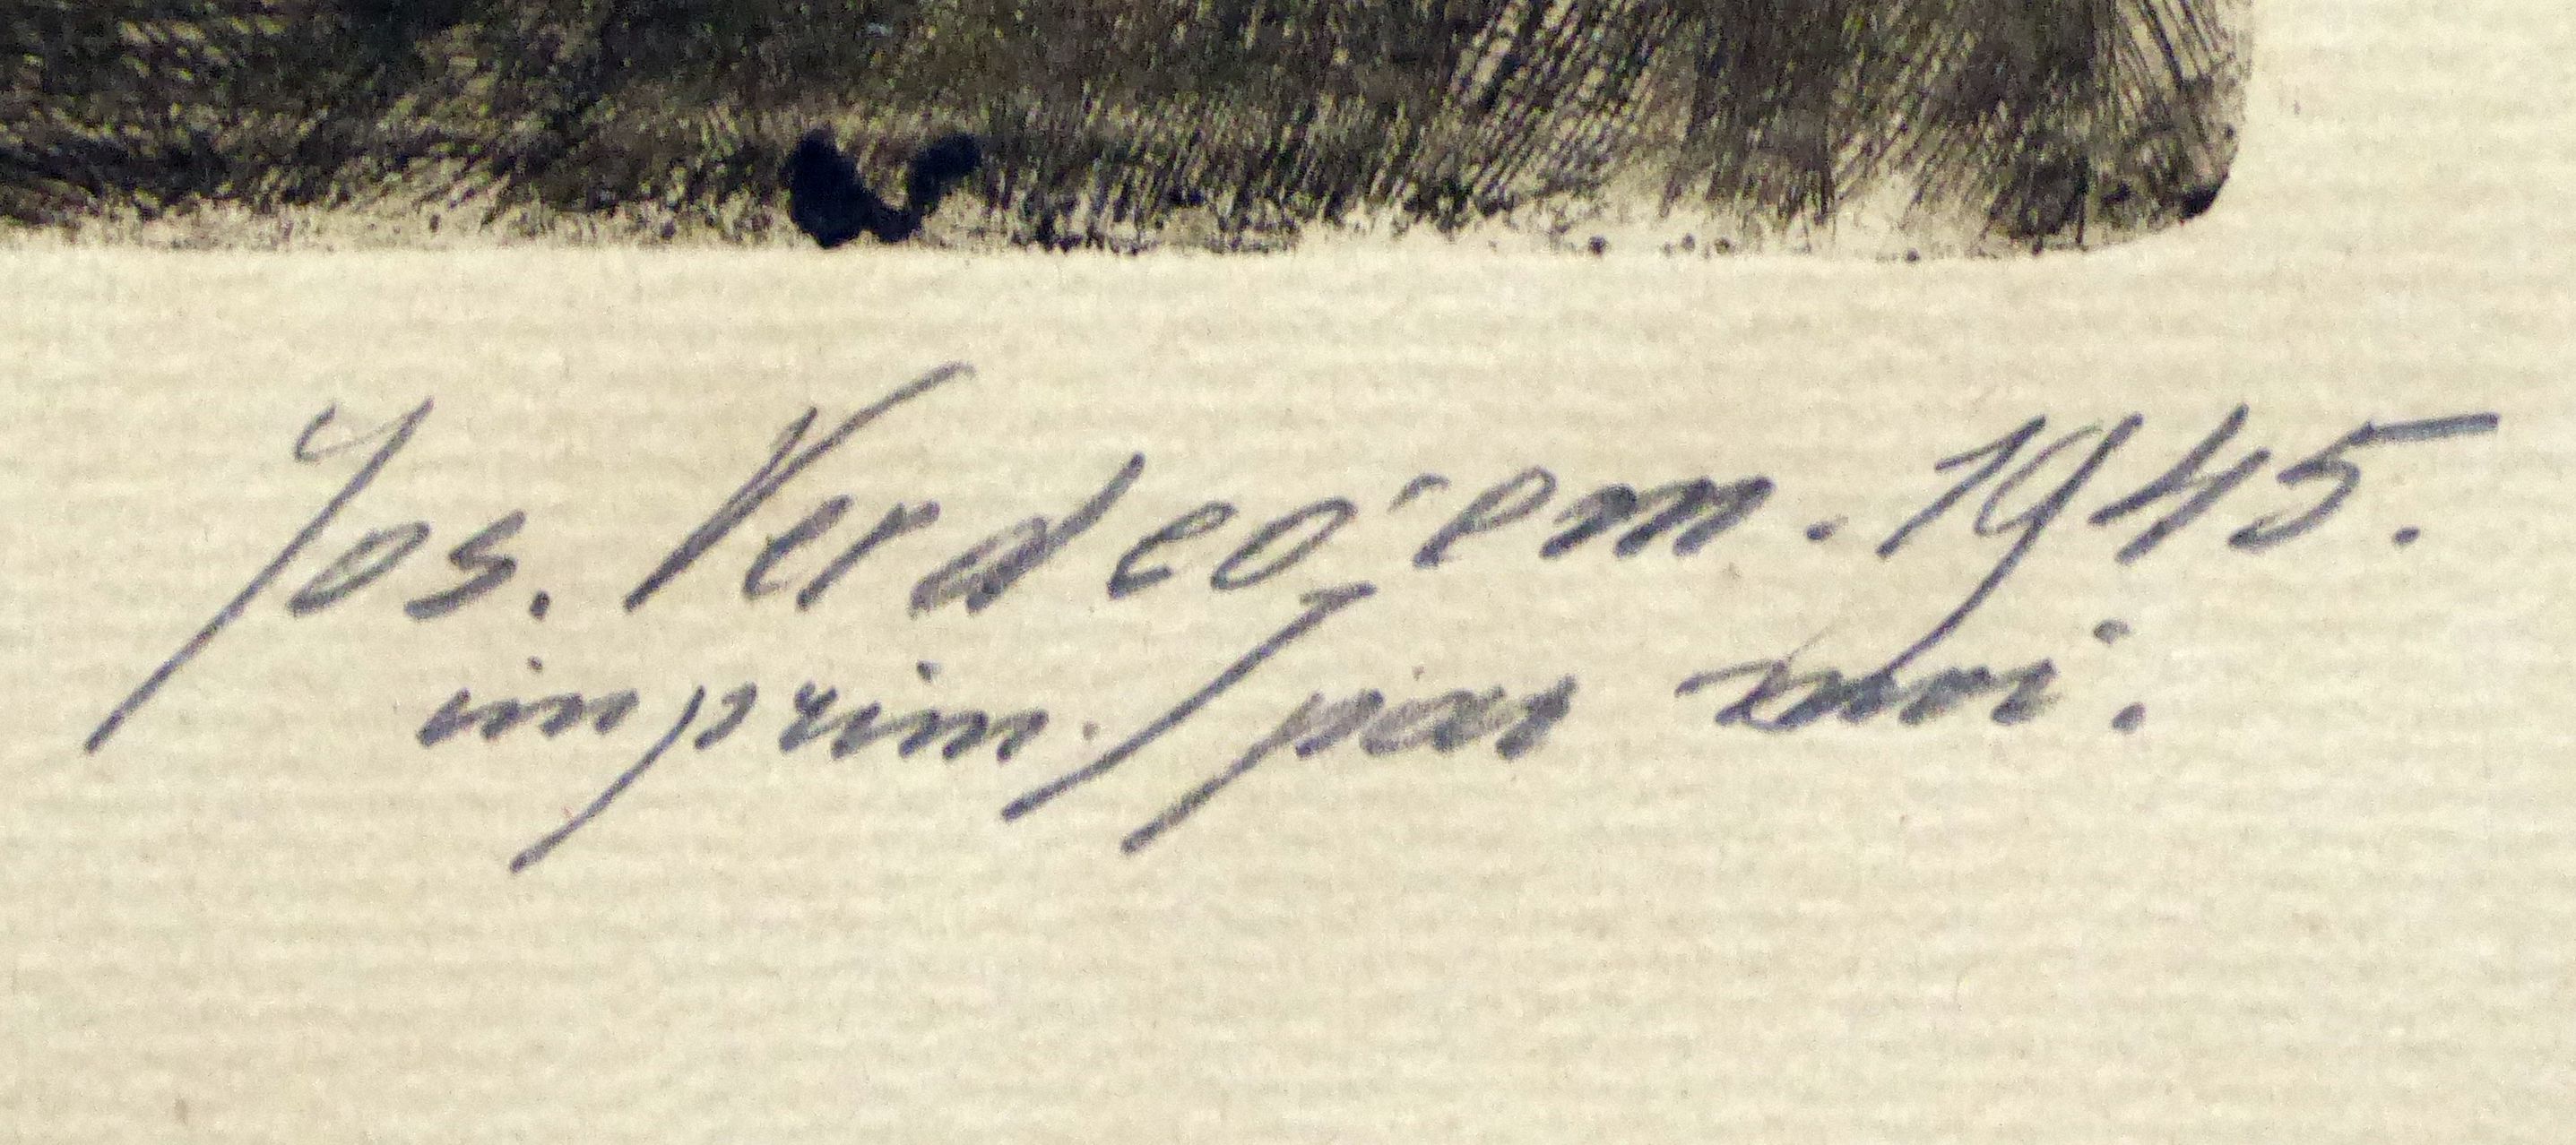 Jos. Verdegem. 1945.
imprim. par moi.